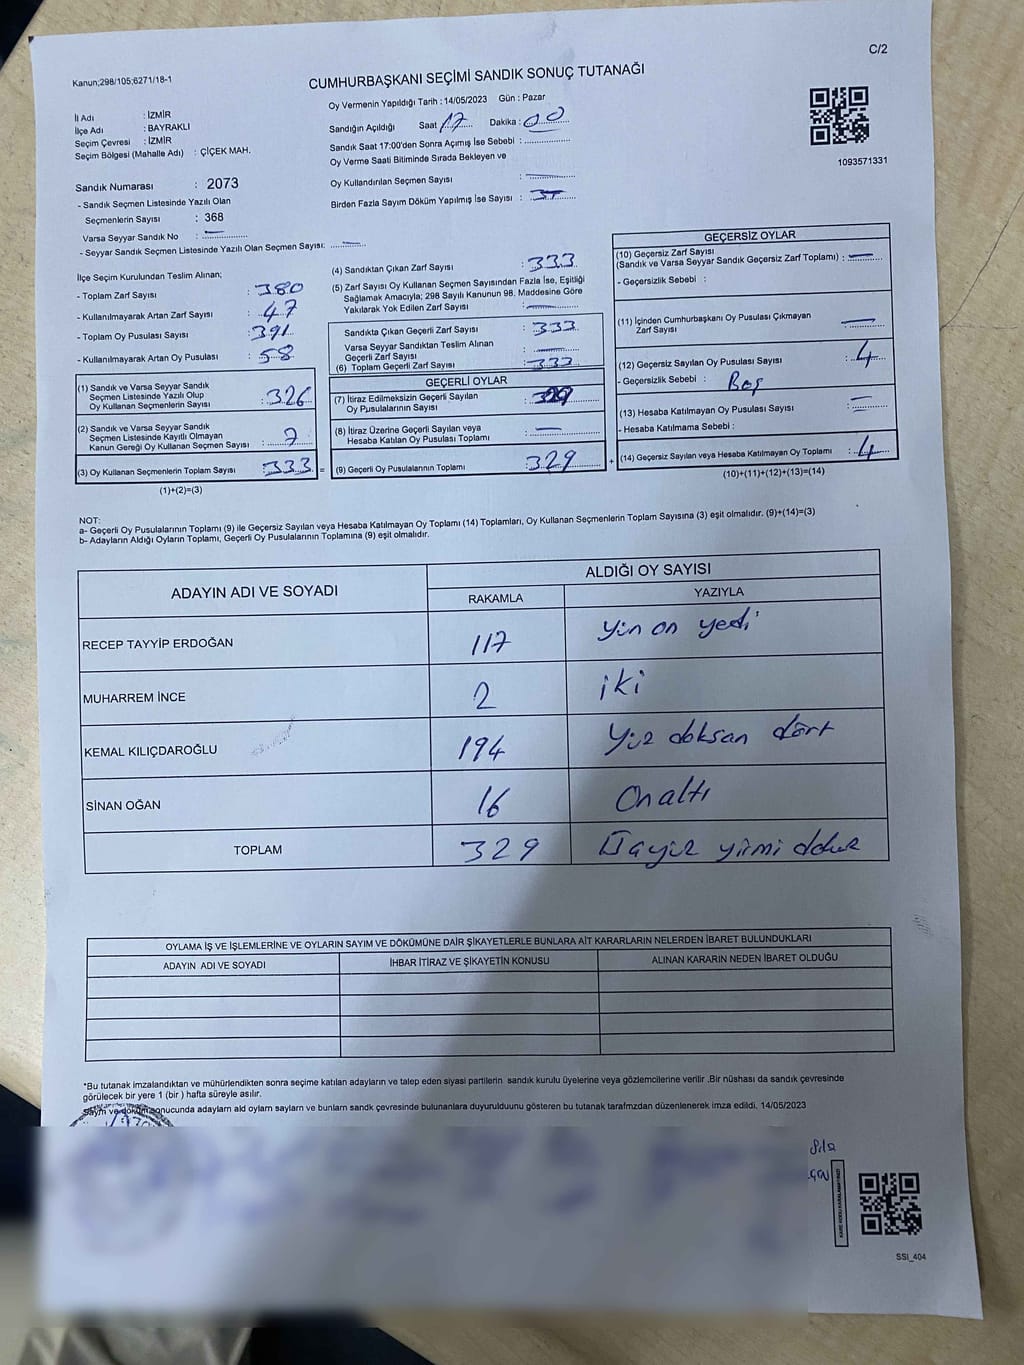 C/2
Kanun;298/105;6271/18-1
CUMHURBAŞKANI SEÇİMİ SANDIK SONUÇ TUTANAĞI
İl Adı : İZMİR
İlçe Adı : BAYRAKLI
Seçim Çevresi : İZMİR
Seçim Bölgesi (Mahalle Adı) : ÇİÇEK MAH.
Sandık Numarası : 2073
- Sandık Seçmen Listesinde Yazılı Olan
Seçmenlerin Sayısı : 368
Varsa Seyyar Sandık No :
- Seyyar Sandık Seçmen Listesinde Yazılı Olan Seçmen Sayısı:
Oy Vermenin Yapıldığı Tarih : 14/05/2023 Gün : Pazar
Sandığın Açıldığı Saat 17 Dakika : 00
Sandık Saat 17:00'den Sonra Açımış İse Sebebi :
Oy Verme Saati Bitiminde Sırada Bekleyen ve
Oy Kullandırılan Seçmen Sayısı :
Birden Fazla Sayım Döküm Yapılmış İse Sayısı :
1093571331
İlçe Seçim Kurulundan Teslim Alınan;
- Toplam Zarf Sayısı : 380
- Kullanılmayarak Artan Zarf Sayısı : 47
- Toplam Oy Pusulası Sayısı : 391
- Kullanılmayarak Artan Oy Pusulası : 58
(1) Sandık ve Varsa Seyyar Sandık
Seçmen Listesinde Yazılı Olup
Oy Kullanan Seçmenlerin Sayısı : 326
(2) Sandık ve Varsa Seyyar Sandık
Seçmen Listesinde Kayıtlı Olmayan
Kanun Gereği Oy Kullanan Seçmen Sayısı : 7
(3) Oy Kullanan Seçmenlerin Toplam Sayısı : 333 =
(1)+(2)=(3)
(4) Sandıktan Çıkan Zarf Sayısı : 333
(5) Zarf Sayısı Oy Kullanan Seçmen Sayısından Fazla İse, Eşitliği
Sağlamak Amacıyla; 298 Sayılı Kanunun 98. Maddesine Göre
Yakılarak Yok Edilen Zarf Sayısı :
Sandıkta Çıkan Geçerli Zarf Sayısı : 333
Varsa Seyyar Sandıktan Teslim Alınan
Geçerli Zarf Sayısı :
(6) Toplam Geçerli Zarf Sayısı : 333
GEÇERLİ OYLAR
(7) İtiraz Edilmeksizin Geçerli Sayılan
Oy Pusulalarının Sayısı : 329
(8) İtiraz Üzerine Geçerli Sayılan veya
Hesaba Katılan Oy Pusulası Toplamı :
(9) Geçerli Oy Pusulalarının Toplamı 329 +
GEÇERSİZ OYLAR
(10) Geçersiz Zarf Sayısı
(Sandık ve Varsa Seyyar Sandık Geçersiz Zarf Toplamı) :
- Geçersizlik Sebebi :
(11) İçinden Cumhurbaşkanı Oy Pusulası Çıkmayan
Zarf Sayısı :
(12) Geçersiz Sayılan Oy Pusulası Sayısı : 4
- Geçersizlik Sebebi : Boş
(13) Hesaba Katılmayan Oy Pusulası Sayısı :
- Hesaba Katılmama Sebebi :
(14) Geçersiz Sayılan veya Hesaba Katılmayan Oy Toplamı : 4
(10)+(11)+(12)+(13)=(14)
NOT:
a- Geçerli Oy Pusulalarının Toplamı (9) ile Geçersiz Sayılan veya Hesaba Katılmayan Oy Toplamı (14) Toplamları, Oy Kullanan Seçmenlerin Toplam Sayısına (3) eşit olmalıdır. (9)+(14)=(3)
b- Adayların Aldığı Oyların Toplamı, Geçerli Oy Pusulalarının Toplamına (9) eşit olmalıdır.
ADAYIN ADI VE SOYADI
ALDIĞI OY SAYISI
RAKAMLA YAZIYLA
RECEP TAYYİP ERDOĞAN 117 on yedi
MUHARREM İNCE 2 iki
KEMAL KILIÇDAROĞLU 194 Yüz doksan dört
SİNAN OĞAN 16 On altı
TOPLAM 329 yirmi
OYLAMA İŞ VE İŞLEMLERİNE VE OYLARIN SAYIM VE DÖKÜMÜNE DAİR ŞİKAYETLERLE BUNLARA AİT KARARLARIN NELERDEN İBARET BULUNDUKLARI
ADAYIN ADI VE SOYADI İHBAR İTİRAZ VE ŞİKAYETİN KONUSU ALINAN KARARIN NEDEN İBARET OLDUĞU
*Bu tutanak imzalandıktan ve mühürlendikten sonra seçime katılan adayların ve talep eden siyasi partilerin sandık kurulu üyelerine veya gözlemcilerine verilir .Bir nüshası da sandık çevresinde
görülecek bir yere 1 (bir ) hafta süreyle asılır.
Sayım ve döküm sonucunda adayların ald oyların sayların ve bunların sandk çevresinde bulunanlara duyurulduunu gösteren bu tutanak tarafmzdan düzenlenerek imza edildi. 14/05/2023
SSI_404